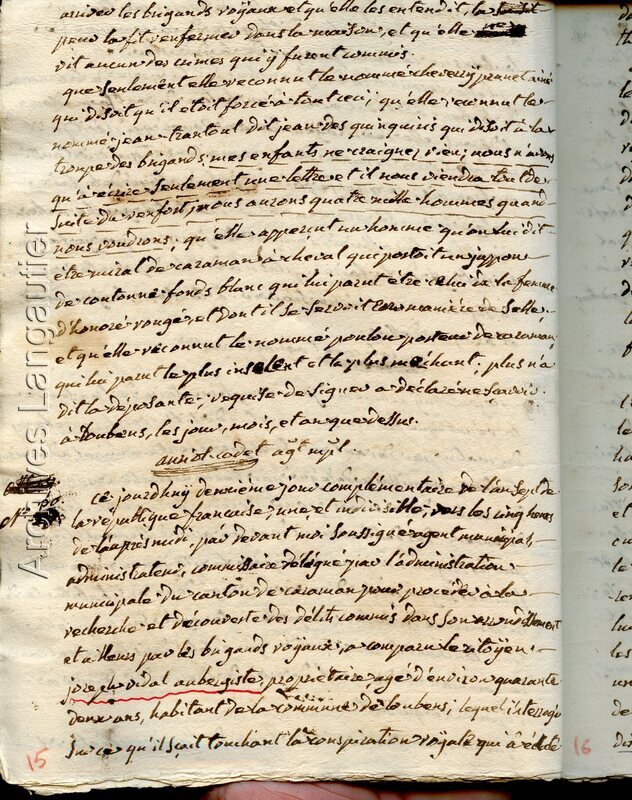 arrivée les brigands royaux et qu'elle les entendit, la
peur la fit renfermer dans la maison, et qu'elle ne
vit aucun des crimes qui y furent commis.
que seulement elle reconnut le nommé cheverry
qui disoit qu'il étoit forcé à tout ceci; qu'elle reconnut le
nommé jean trantoul dit jean des quinquiris qui disoit à la
troupe des brigands; mes enfants ne craignez rien; nous n'avons
qu'à écrire seulement une lettre et il nous viendra tout de
suite du renfort, nous aurons quatre mille hommes quand
nous voudrons; qu'elle apperçut un homme qu'on lui dit
être miral de caraman à cheval qui portoit un juppon
de cotonne fonds blanc qui lui parut être celui de la femme
d'honoré rougé et dont il se servoit en manière de selle.
et qu'elle reconnut le nommé poulou porteur de caraman
qui lui parut le plus insolent et le plus méchant; plus n'a
dit la déposante, requise de signer a déclaré ne savoir.
à Loubens, les jour, mois, et an que dessus.
auriol cadet agt mpl
Ce jourd'huy deuxième jour complémentaire de l'an sept de
la république française une et indivisible, vers les cinq heures
de l'après midi, par devant moi soussigné agent municipal,
administrateur, commissaire délégué par l'administration
municipale du canton de caraman pour procéder à la
recherche et découverte des délits commis dans son arrondissement
et ailleurs par les brigands royaux, a comparu le citoyen
joseph vidal aubergiste, propriétaire agé d'environ quarante
deux ans, habitant de la commune de loubens; lequel interrogé
sur ce qu'il sçait touchant la conspiration royale qui a éclaté
15
16
Archives Langautier